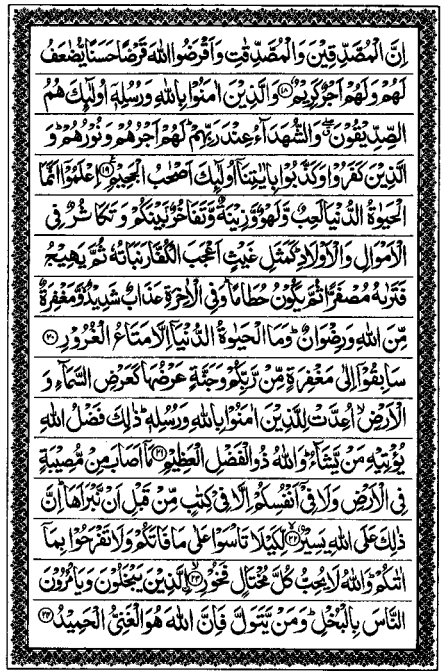 اِنَّ الْمُصَّدِّقِيْنَ وَالْمُصَّدِّقٰتِ وَاَقْرَضُوا اللّٰهَ قَرْضًا حَسَنًا يُّضٰعَفُ
لَهُمْ وَلَهُمْ اَجْرٌ كَرِيْمٌ ۝۱۸ وَالَّذِيْنَ اٰمَنُوْا بِاللّٰهِ وَرُسُلِهٖۤ اُولٰٓئِكَ هُمُ
الصِّدِّيْقُوْنَ ۖ وَالشُّهَدَآءُ عِنْدَ رَبِّهِمْ ؕ لَهُمْ اَجْرُهُمْ وَنُوْرُهُمْ ؕ وَ
الَّذِيْنَ كَفَرُوْا وَكَذَّبُوْا بِاٰيٰتِنَاۤ اُولٰٓئِكَ اَصْحٰبُ الْجَحِيْمِ ۝۱۹ اِعْلَمُوْۤا اَنَّمَا
الْحَيٰوةُ الدُّنْيَا لَعِبٌ وَّلَهْوٌ وَّزِيْنَةٌ وَّتَفَاخُرٌۢ بَيْنَكُمْ وَتَكَاثُرٌ فِى
الْاَمْوَالِ وَالْاَوْلَادِ ؕ كَمَثَلِ غَيْثٍ اَعْجَبَ الْكُفَّارَ نَبَاتُهٗ ثُمَّ يَهِيْجُ
فَتَرٰىهُ مُصْفَرًّا ثُمَّ يَكُوْنُ حُطَامًا ؕ وَفِى الْاٰخِرَةِ عَذَابٌ شَدِيْدٌ ۙ وَّمَغْفِرَةٌ
مِّنَ اللّٰهِ وَرِضْوَانٌ ؕ وَمَا الْحَيٰوةُ الدُّنْيَاۤ اِلَّا مَتَاعُ الْغُرُوْرِ ۝۲۰
سَابِقُوْۤا اِلٰى مَغْفِرَةٍ مِّنْ رَّبِّكُمْ وَجَنَّةٍ عَرْضُهَا كَعَرْضِ السَّمَآءِ وَ
الْاَرْضِ ۙ اُعِدَّتْ لِلَّذِيْنَ اٰمَنُوْا بِاللّٰهِ وَرُسُلِهٖ ؕ ذٰلِكَ فَضْلُ اللّٰهِ
يُؤْتِيْهِ مَنْ يَّشَآءُ ؕ وَاللّٰهُ ذُو الْفَضْلِ الْعَظِيْمِ ۝۲۱ مَاۤ اَصَابَ مِنْ مُّصِيْبَةٍ
فِى الْاَرْضِ وَلَا فِىْۤ اَنْفُسِكُمْ اِلَّا فِىْ كِتٰبٍ مِّنْ قَبْلِ اَنْ نَّبْرَاَهَا ؕ اِنَّ
ذٰلِكَ عَلَى اللّٰهِ يَسِيْرٌ ۝۲۲ لِّكَيْلَا تَاْسَوْا عَلٰى مَا فَاتَكُمْ وَلَا تَفْرَحُوْا بِمَاۤ
اٰتٰىكُمْ ؕ وَاللّٰهُ لَا يُحِبُّ كُلَّ مُخْتَالٍ فَخُوْرِ ۝۲۳ ۙ الَّذِيْنَ يَبْخَلُوْنَ وَيَاْمُرُوْنَ
النَّاسَ بِالْبُخْلِ ؕ وَمَنْ يَّتَوَلَّ فَاِنَّ اللّٰهَ هُوَ الْغَنِىُّ الْحَمِيْدُ ۝۲۴